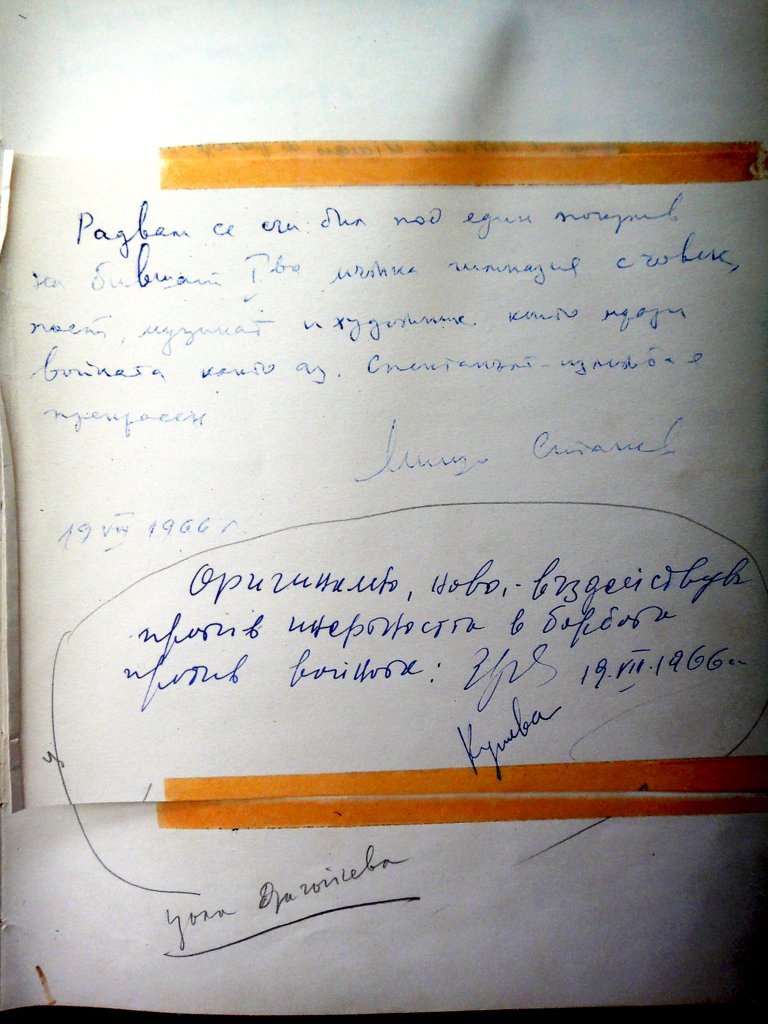 Радвам се съм бил под един покрив
на бившата Iва мъжка гимназия с човек,
поет, музикант и художник. който мрази
войната както аз. Спектакълът-изложба е
прекрасен
19 VII 1966 г.
Оригинално, ново, въздействува
против инертността в борбата
против войната: 19.VII.1966 г.
Цола Драгойчева